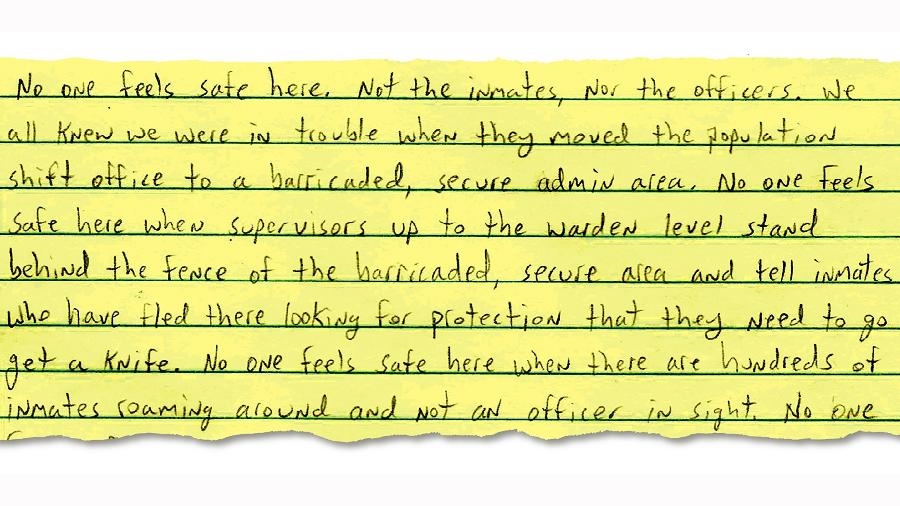 No one feels safe here. Not the inmates, Nor the officers. We
all knew we were in trouble when they moved the population
shift office to a barricaded, secure admin area. No one feels
safe here when supervisors up to the warden level stand
behind the fence of the barricaded, secure area and tell inmates
who have fled there looking for protection that they need to go
get a knife. No one feels safe here when there are hundreds of
inmates roaming around and not an officer in sight. No one